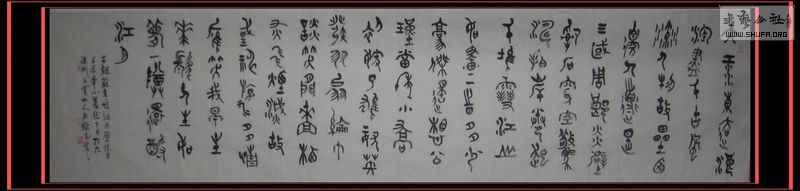 大江東去浪
淘盡千古風
流人物故壘西
邊人道是
三國周郎赤壁
亂石穿空驚
濤拍岸捲起
千堆雪江山
如畫一時多少
豪傑遙想公
瑾當年小喬
初嫁了雄姿英
發羽扇綸巾
談笑間檣櫓
灰飛煙滅故
國神遊多情
應笑我早生
華髮人生如
夢一樽還酹
江月
WWW.SHUFA.ORG